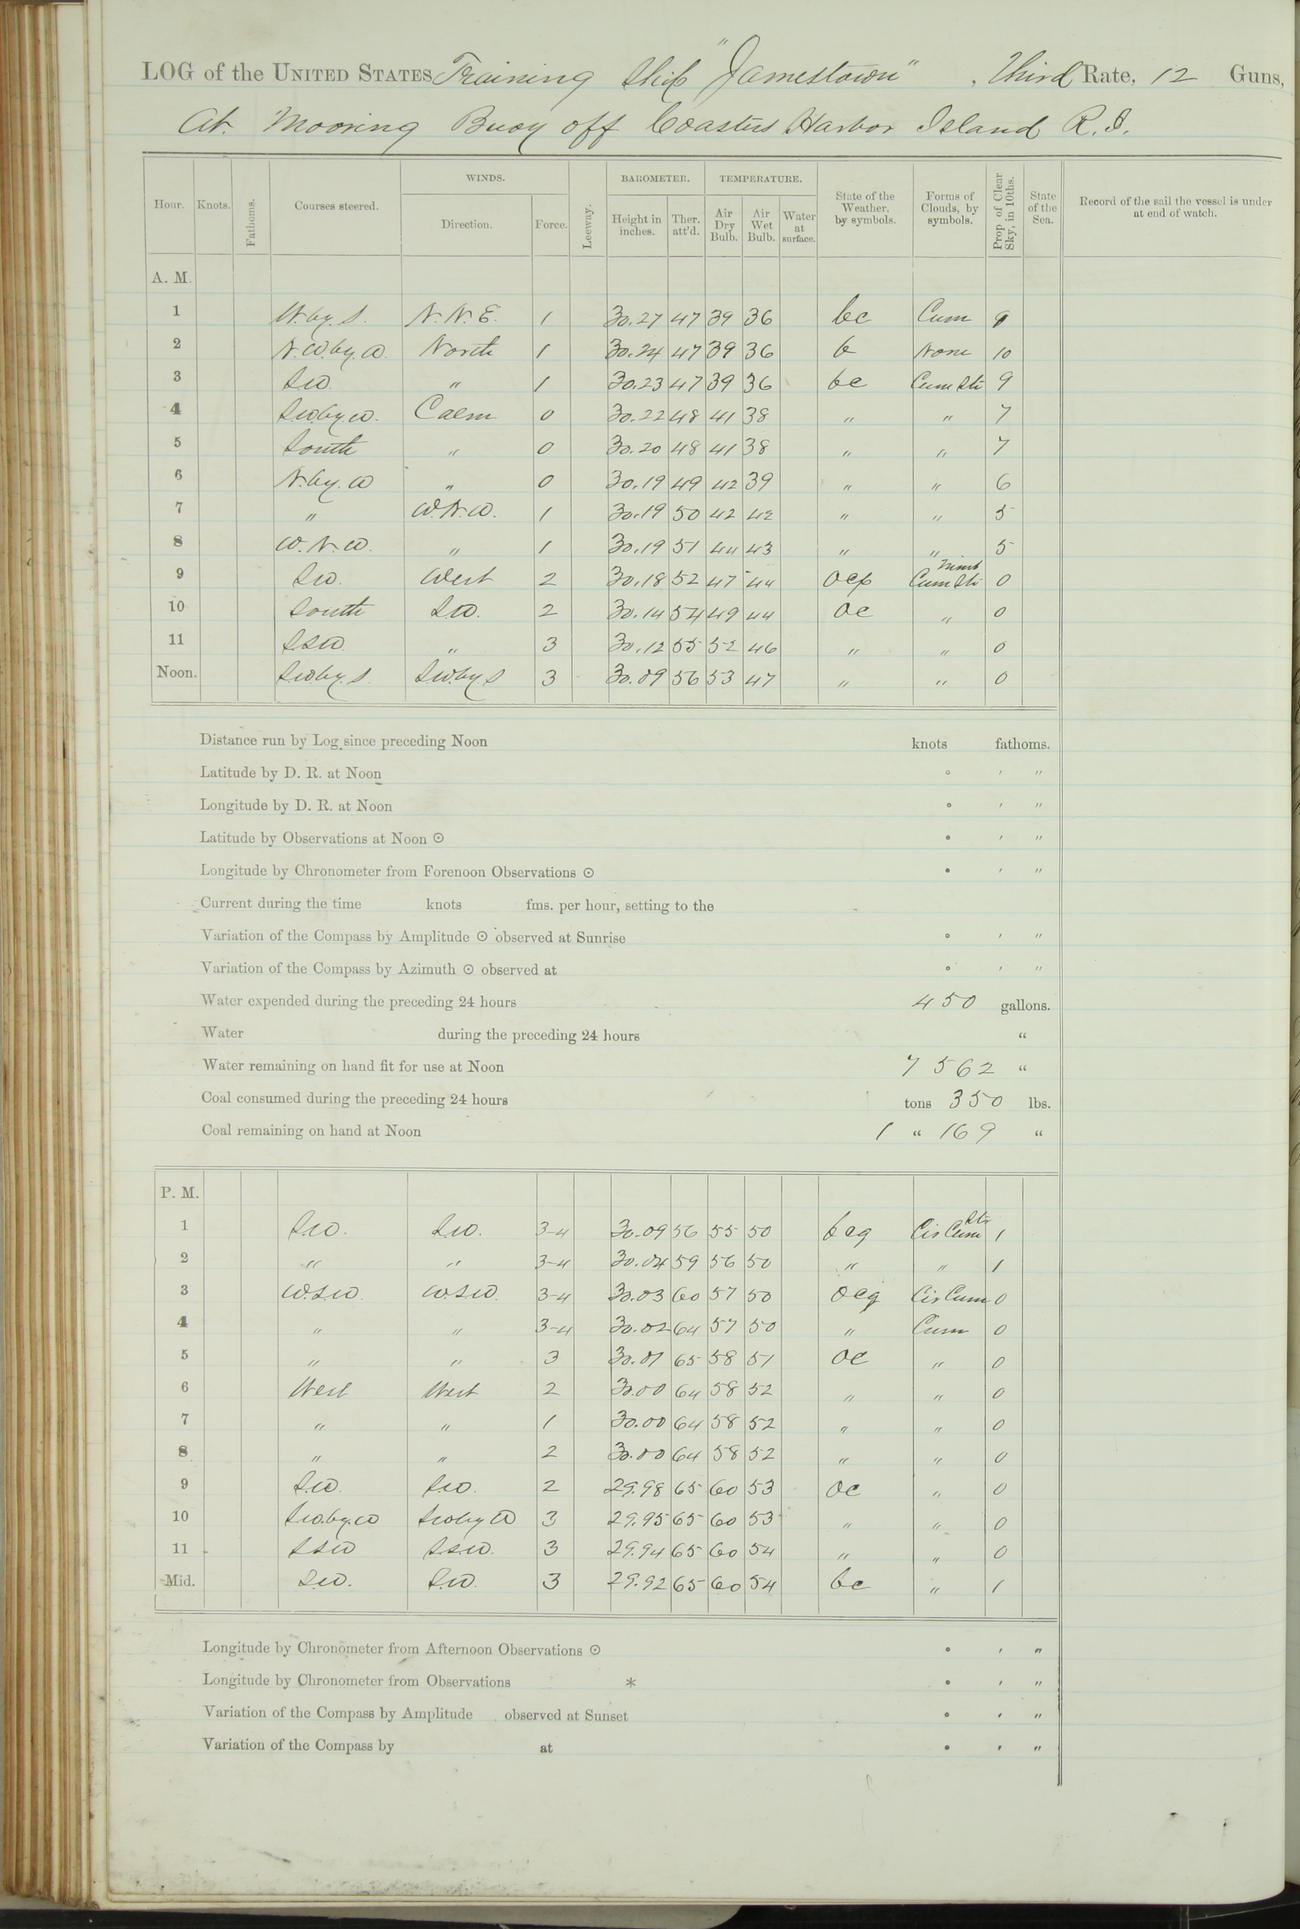 LOG of the UNITED STATES Training Ship "Jamestown", Third Rate, 12 Guns,
At Mooring Buoy off Coasters Harbor Island R.I.
Hour. Knots. Fathoms. Courses steered. WINDS. Direction. Force. Leeway. BAROMETER. Height in inches. Ther. att'd. TEMPERATURE. Air Dry Bulb. Air Wet Bulb. Water at surface. State of the Weather, by symbols. Forms of Clouds, by symbols. Prop. of Clear Sky, in 10ths. State of the Sea. Record of the sail the vessel is under at end of watch.
A. M.
1 W. by. S. N. N. E. 1 30.27 47 39 36 bc Cum 9
2 N.W. by. W. North 1 30.24 47 39 36 b None 10
3 S.W. " 1 30.23 47 39 36 bc Cum Str 9
4 S.W. by. W. Calm 0 30.22 48 41 38 " " 7
5 South " 0 30.20 48 41 38 " " 7
6 N. by. W " 0 30.19 49 42 39 " " 6
7 " W. N. W. 1 30.19 50 42 42 " " 5
8 W. N. W. " 1 30.19 51 44 43 " " 5
9 S.W. West 2 30.18 52 47 44 ocp Cum Str Nimb 0
10 South S.W. 2 30.14 54 49 44 oc " 0
11 SSW " 3 30.12 55 52 46 " " 0
Noon. S.W by S S.W. by S 3 30.09 56 53 47 " " 0
Distance run by Log since preceding Noon knots fathoms.
Latitude by D. R. at Noon ° ′ ″
Longitude by D. R. at Noon ° ′ ″
Latitude by Observations at Noon ☉ ° ′ ″
Longitude by Chronometer from Forenoon Observations ☉ ° ′ ″
Current during the time knots fms. per hour, setting to the
Variation of the Compass by Amplitude ☉ observed at Sunrise ° ′ ″
Variation of the Compass by Azimuth ☉ observed at ° ′ ″
Water expended during the preceding 24 hours 450 gallons.
Water during the preceding 24 hours "
Water remaining on hand fit for use at Noon 7562 "
Coal consumed during the preceding 24 hours tons 350 lbs.
Coal remaining on hand at Noon 1 " 169 "
P. M.
1 S.W. S.W. 3-4 30.09 56 55 50 bcq Cir Cum Str 1
2 " " 3-4 30.04 59 56 50 " " 1
3 W.S.W. W.S.W. 3-4 30.03 60 57 50 ocq Cir Cum 0
4 " " 3-4 30.02 64 57 50 " Cum 0
5 " " 3 30.01 65 58 51 oc " 0
6 West West 2 30.00 64 58 52 " " 0
7 " " 1 30.00 64 58 52 " " 0
8 " " 2 30.00 64 58 52 " " 0
9 S.W. S.W. 2 29.98 65 60 53 oc " 0
10 S.W. by. W S.W by W 3 29.95 65 60 53 " " 0
11 SSW S.S.W. 3 29.94 65 60 54 " " 0
Mid. S.W. S.W. 3 29.92 65 60 54 bc " 1
Longitude by Chronometer from Afternoon Observations ☉ ° ′ ″
Longitude by Chronometer from Observations * ° ′ ″
Variation of the Compass by Amplitude observed at Sunset ° ′ ″
Variation of the Compass by at ° ′ ″